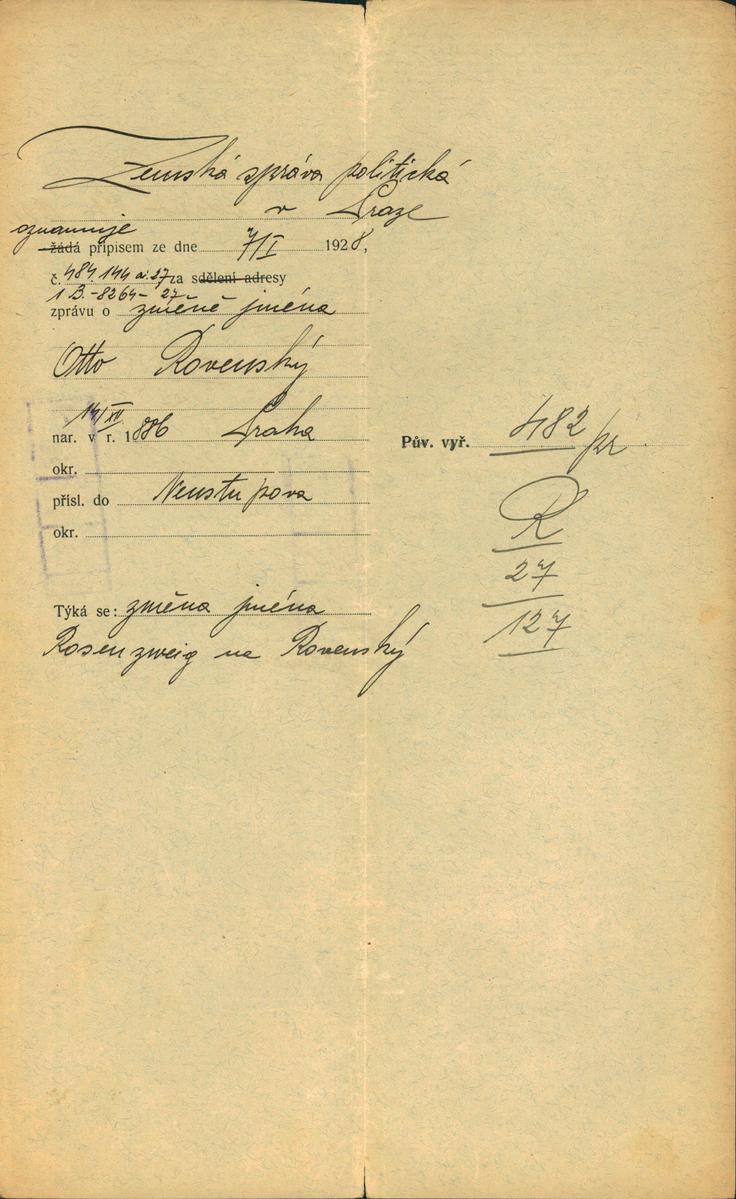 Zemská správa politická
v Praze
oznamuje
žádá přípisem ze dne 7/I 1928,
č. 484.144 a. 27 za sdělení adresy
1 B.-8264-27
zprávu o změně jména
Otto Rovenský
14/XII
nar. v r. 1886 Praha
okr.
přísl. do Neustupova
okr.
Týká se: změna jména
Rosenzweig na Rovenský
Pův. vyř. 482 pr
R
27
127